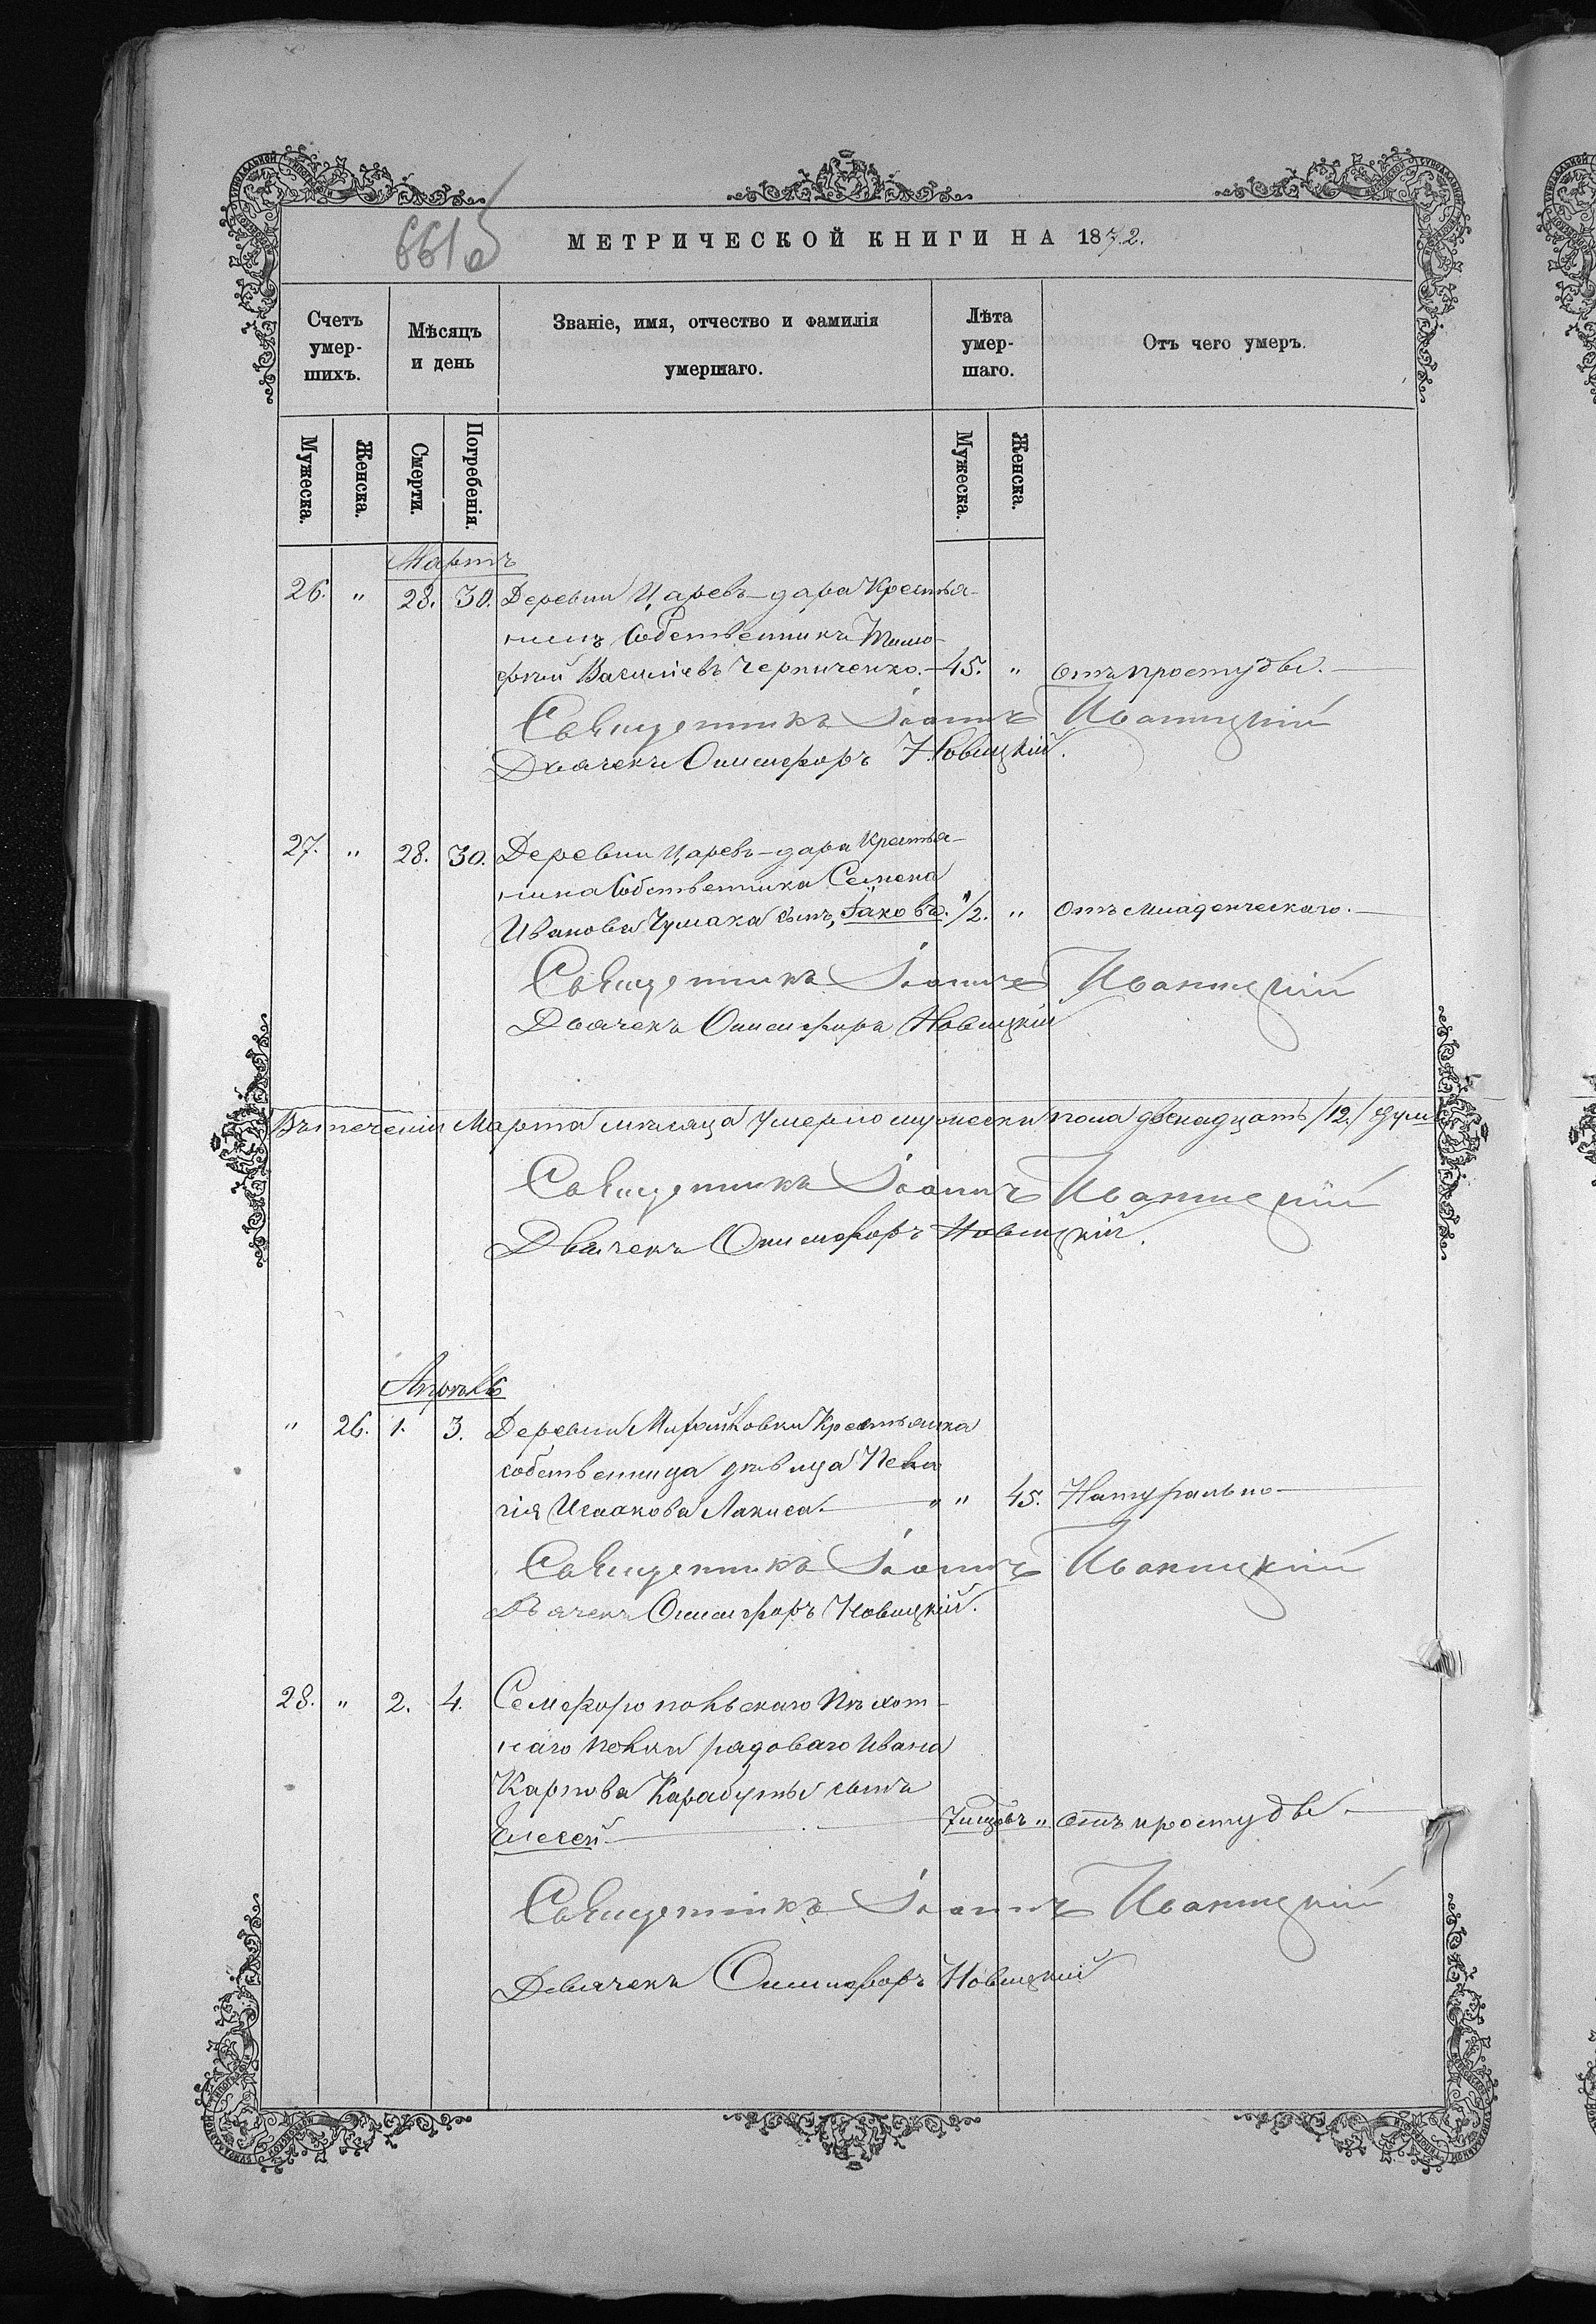 661б
МЕТРИЧЕСКОЙ КНИГИ НА 1872.
Счетъ умер-шихъ.
Мѣсяцъ и день
Званіе, имя, отчество и фамилія умершаго.
Лѣта умер-шаго.
Отъ чего умеръ.
Мужеска.
Женска.
Смерти.
Погребенія.
Мужеска.
Женска.
Мартъ
26. " 28. 30. Деревни Царевъ-дара Крестья-
нинъ Собственникъ Тимо-
фей Василіевъ Черниченко. 45. " отъ простуды.
Священникъ Іоаннъ Иваницкій
Дьячекъ Онисифоръ Новицкій.
27. " 28. 30. Деревни Царевъ-дара Крестья-
нина Собственника Семена
Иванова Чумака сынъ, Іаковъ. 1/2. " Отъ младенческаго.
Священникъ Іоаннъ Иваницкій
Дьячекъ Онисифоръ Новицкій
Въ теченіи Марта мѣсяца умерло мужеска пола двенадцать /12/ душъ
Священникъ Іоаннъ Иваницкій
Дьячекъ Онисифоръ Новицкій.
Апрѣль
" 26. 1. 3. Деревни Крестьянка
собственница дѣвица Пела
гія Исаакова Лакиса. " " 45. Натурально
Священникъ Іоаннъ Иваницкій
Дьячекъ Онисифоръ Новицкій.
28. " 2. 4. Семферопольскаго Пѣхот-
наго полка рядоваго Ивана
Карпова Карабуты сынъ
Елесей " отъ простуды
Священникъ Іоаннъ Иваницкій
Дьячекъ Онисифоръ Новицкій